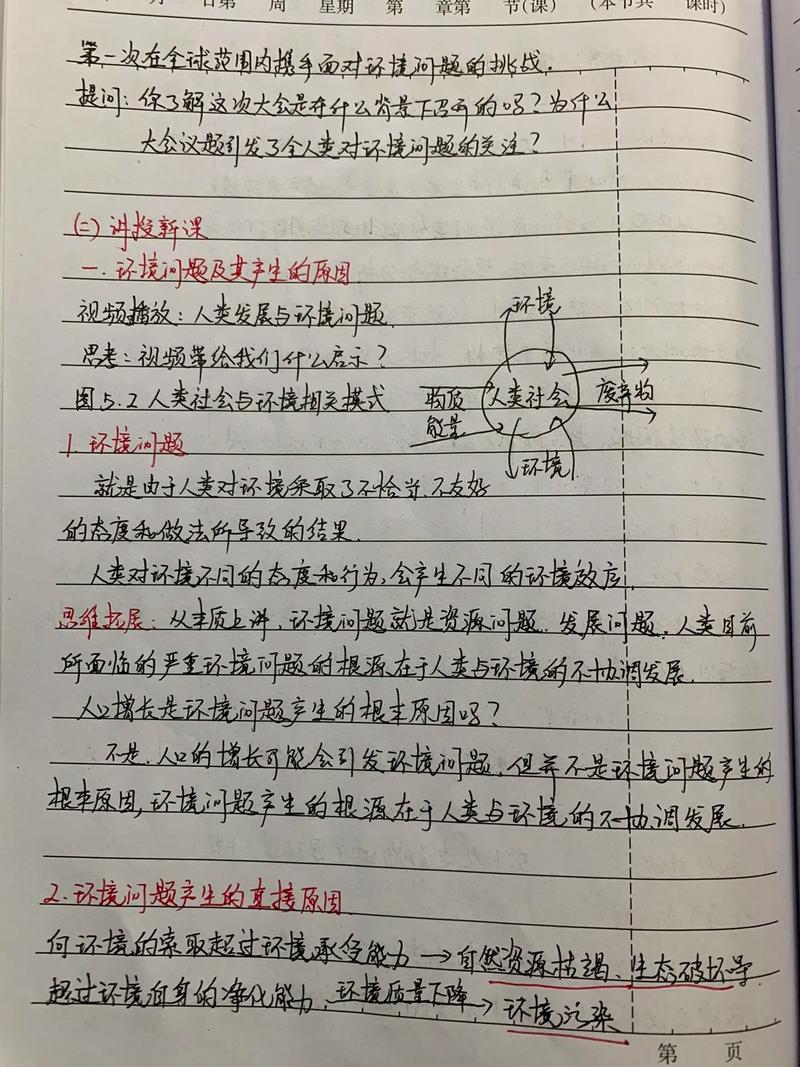 月 日第 周 星期 第 章第 节(课) (本节共 课时)
第一次在全球范围内携手面对环境问题的挑战.
提问:你了解这次大会是在什么背景下召开的吗?为什么
大会议题引发了全人类对环境问题的关注?
(二)讲授新课
一.环境问题及其产生的原因
视频播放:人类发展与环境问题.
思考:视频带给我们什么启示?
图5.2人类社会与环境相关模式
环境
物质
能量
人类社会
废弃物
环境
1.环境问题
就是由于人类对环境采取了不恰当.不友好
的态度和做法所导致的结果.
人类对环境不同的态度和行为,会产生不同的环境效应.
思维拓展:从本质上讲,环境问题就是资源问题.发展问题,人类目前
所面临的严重环境问题的根源在于人类与环境的不协调发展.
人口增长是环境问题产生的根本原因吗?
不是.人口的增长可能会引发环境问题,但并不是环境问题产生的
根本原因,环境问题产生的根源在于人类与环境的不协调发展.
2.环境问题产生的直接原因
向环境的索取超过环境承受能力→自然资源枯竭、生态破坏等.
超过环境自身的净化能力,环境质量下降→环境污染
第 页